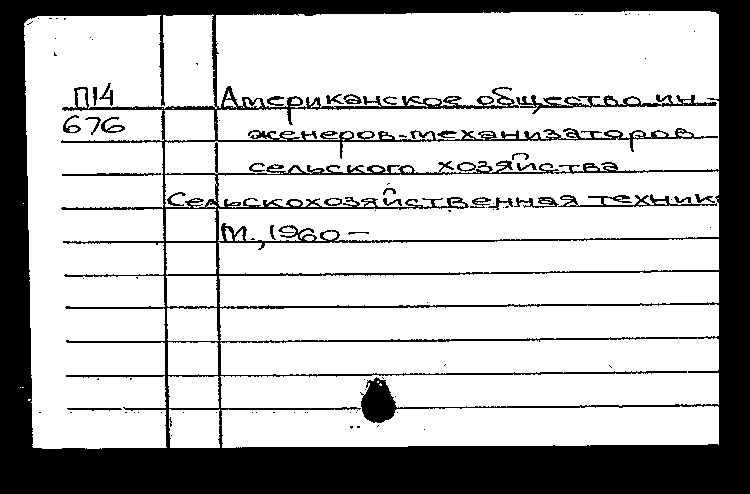 П14 Американское общество ин-
676 женеров-механизаторов
сельского хозяйства
Сельскохозяйственная техник
М., 1960 —